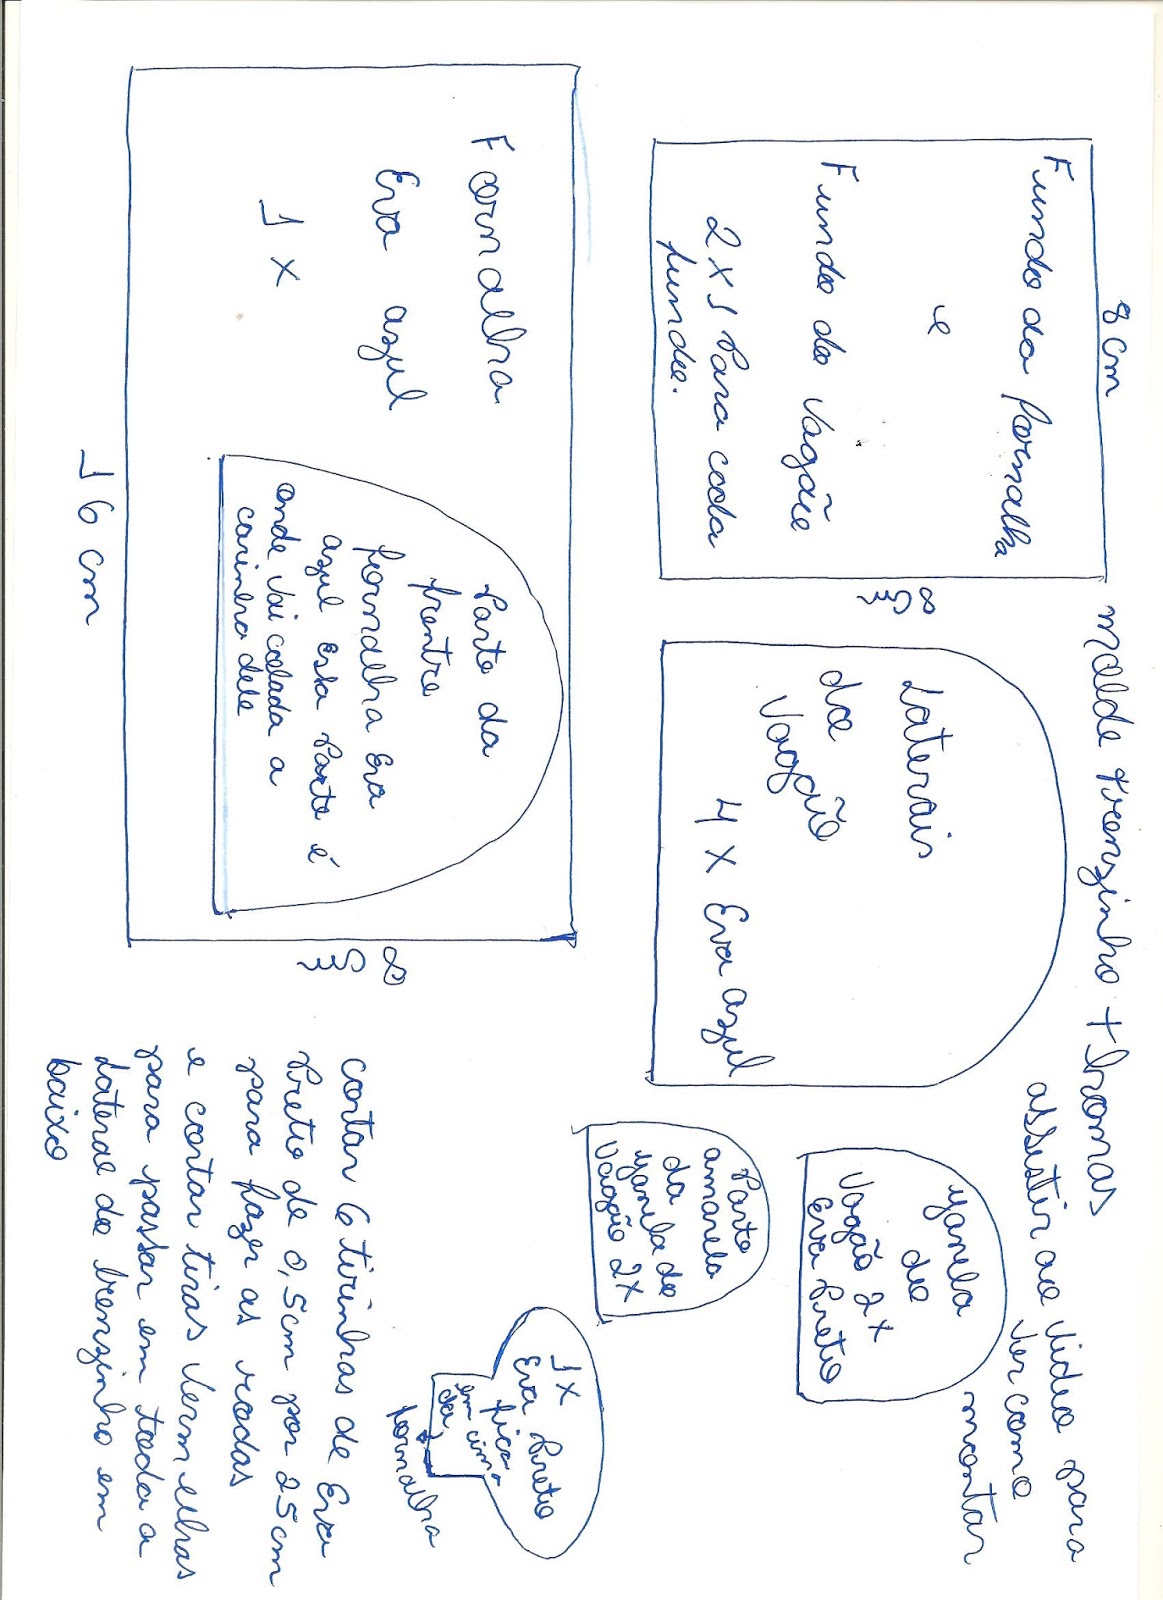 molde trenzinho + thomas
assistir ao video para
ver como
montar
8 cm
Fundo da fornalha
e
Fundo do vagão
2 x 1 para cada
fundo.
8 cm
Laterais
do
vagão
4 x Eva azul
yanela
do
vagão 2x
Eva Preto
Parte
amarela
da
yanela do
vagão 2x
Fornalha
Eva azul
1 x
16 cm
8 cm
Parte da
frente
fornalha Eva
azul essa parte é
onde vai colada a
carinha dele
1x
Eva Preto
fica
em cima
da
fornalha
cortar 6 tirinhas de Eva
Preto de 0,5cm por 25cm
para fazer as rodas
e cortar tiras vermelhas
para passar em toda a
lateral do trenzinho em
baixo